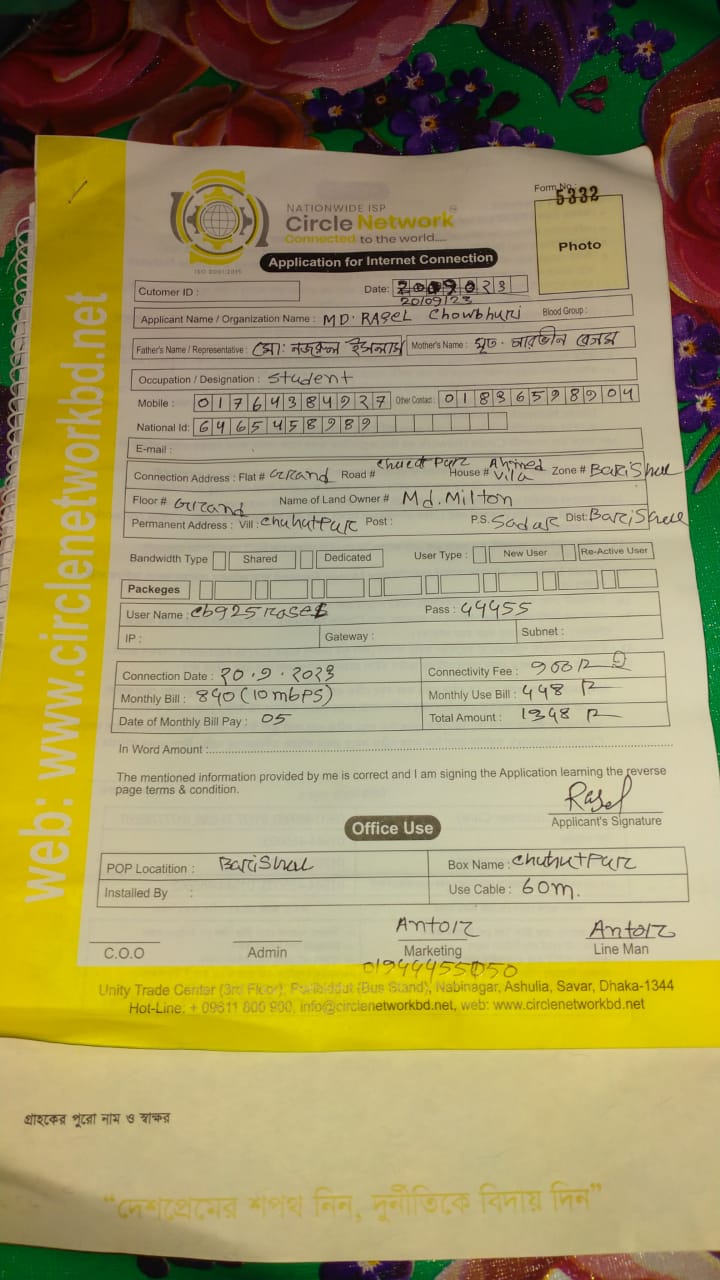 web: www.circlenetworkbd.net
NATIONWIDE ISP
Circle Network
Connected to the world....
ISO 9001:2015
Form No.
5332
Photo
Application for Internet Connection
Cutomer ID :
Date: 023
20/09/23
Applicant Name / Organization Name : MD. RASEL Chowbhuri Blood Group :
Father's Name / Representative : মো: নজরুল ইসলাম Mother's Name : মৃত. পারভীন বেগম
Occupation / Designation : student
Mobile : 01764384927 Other Contact : 01836598904
National Id: 6465458989
E-mail :
Connection Address : Flat # Grand Road # House # Ahmed Vila Zone # Barishal
Floor # Grand Name of Land Owner # Md. Milton
Permanent Address : Vill : chuhutpur Post : P.S. Sadar Dist: Barishal
Bandwidth Type Shared Dedicated User Type : New User Re-Active User
Packeges
User Name : cb925rasel Pass : 44455
IP : Gateway : Subnet :
Connection Date : 20.9.2023 Connectivity Fee : 900
Monthly Bill : 840 (10 mbps) Monthly Use Bill : 448
Date of Monthly Bill Pay : 05 Total Amount : 1348
In Word Amount :
The mentioned information provided by me is correct and I am signing the Application learning the reverse
page terms & condition.
Rasel
Applicant's Signature
Office Use
POP Locatition : Barishal Box Name : chuhutpur
Installed By : Use Cable : 60m.
Antor Antor
C.O.O Admin Marketing Line Man
01944455050
Unity Trade Center (3rd Floor), Pallibiddut (Bus Stand), Nabinagar, Ashulia, Savar, Dhaka-1344
Hot-Line: + 09611 800 900, info@circlenetworkbd.net, web: www.circlenetworkbd.net
গ্রাহকের পুরো নাম ও স্বাক্ষর
“দেশপ্রেমের শপথ নিন, দুর্নীতিকে বিদায় দিন”